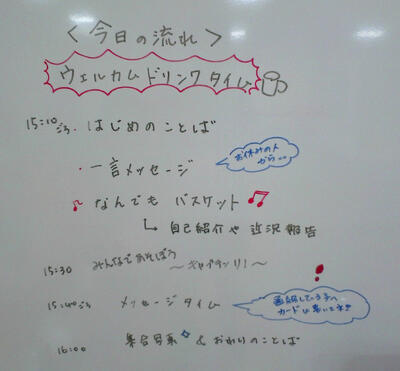 ＜今日の流れ＞
ウェルカムドリンクタイム
15:10ごろ・はじめのことば
・一言メッセージ
お休みの人
から…
♪なんでもバスケット♫
↳自己紹介や近況報告
15:30 みんなであそぼう
～キャプテンリ！～
15:40ごろ メッセージタイム
カードに書いてネ
16:00 集合写真 & おわりのことば